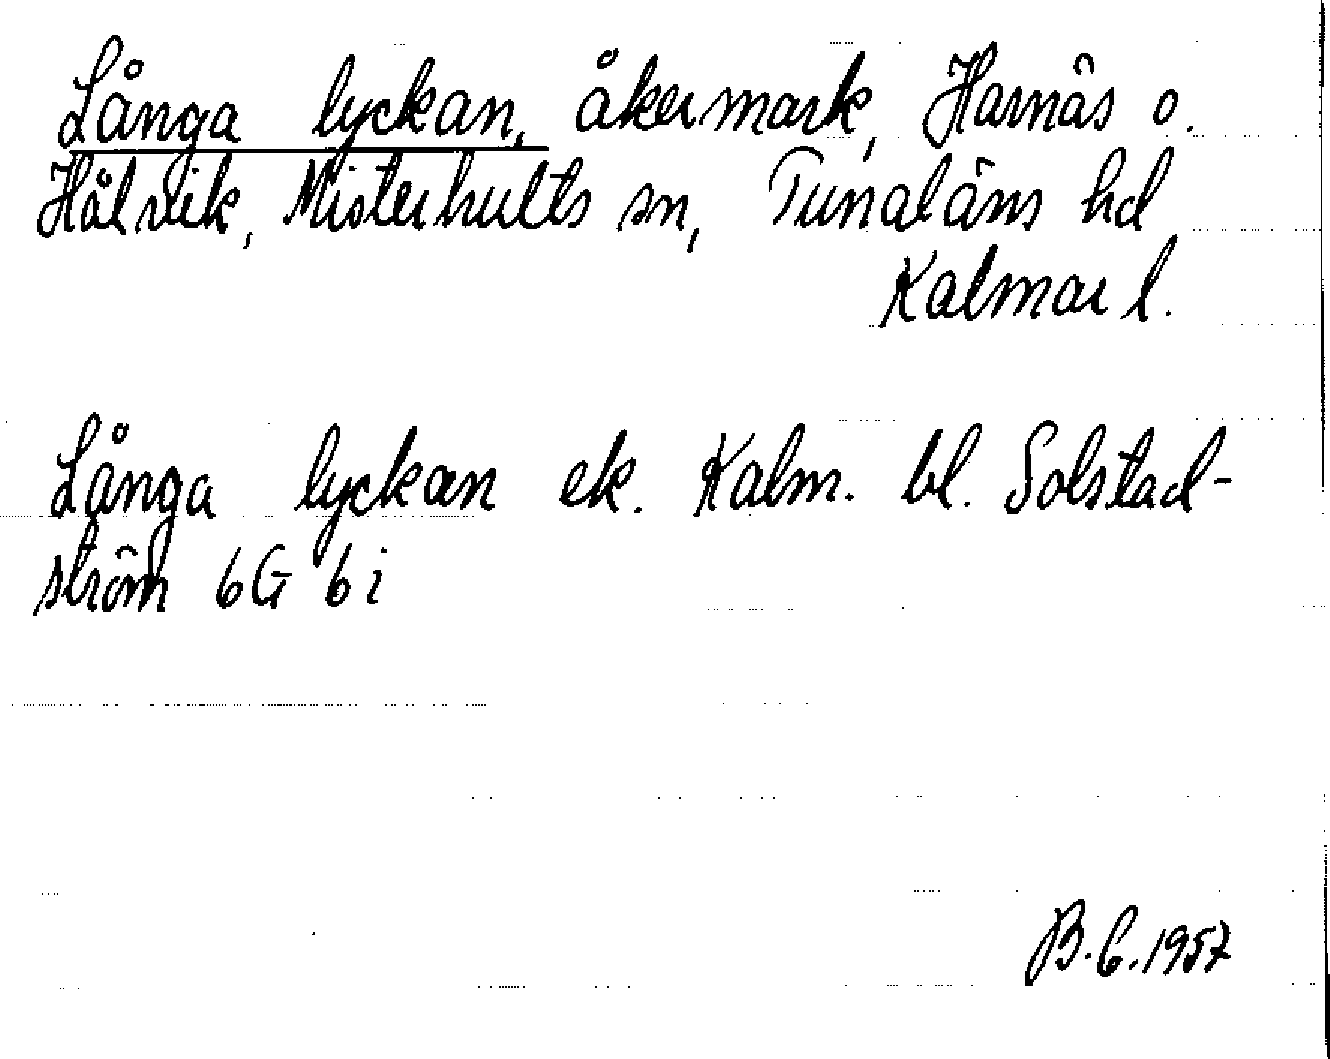 Långa lyckan, åkermark, Harnäs o.
Hålvik, Misterhults sn, Tunaläns hd
Kalmar l.
Långa lyckan ek. Kalm. bl. Solstad-
ström 6G 6i
B.G.1957